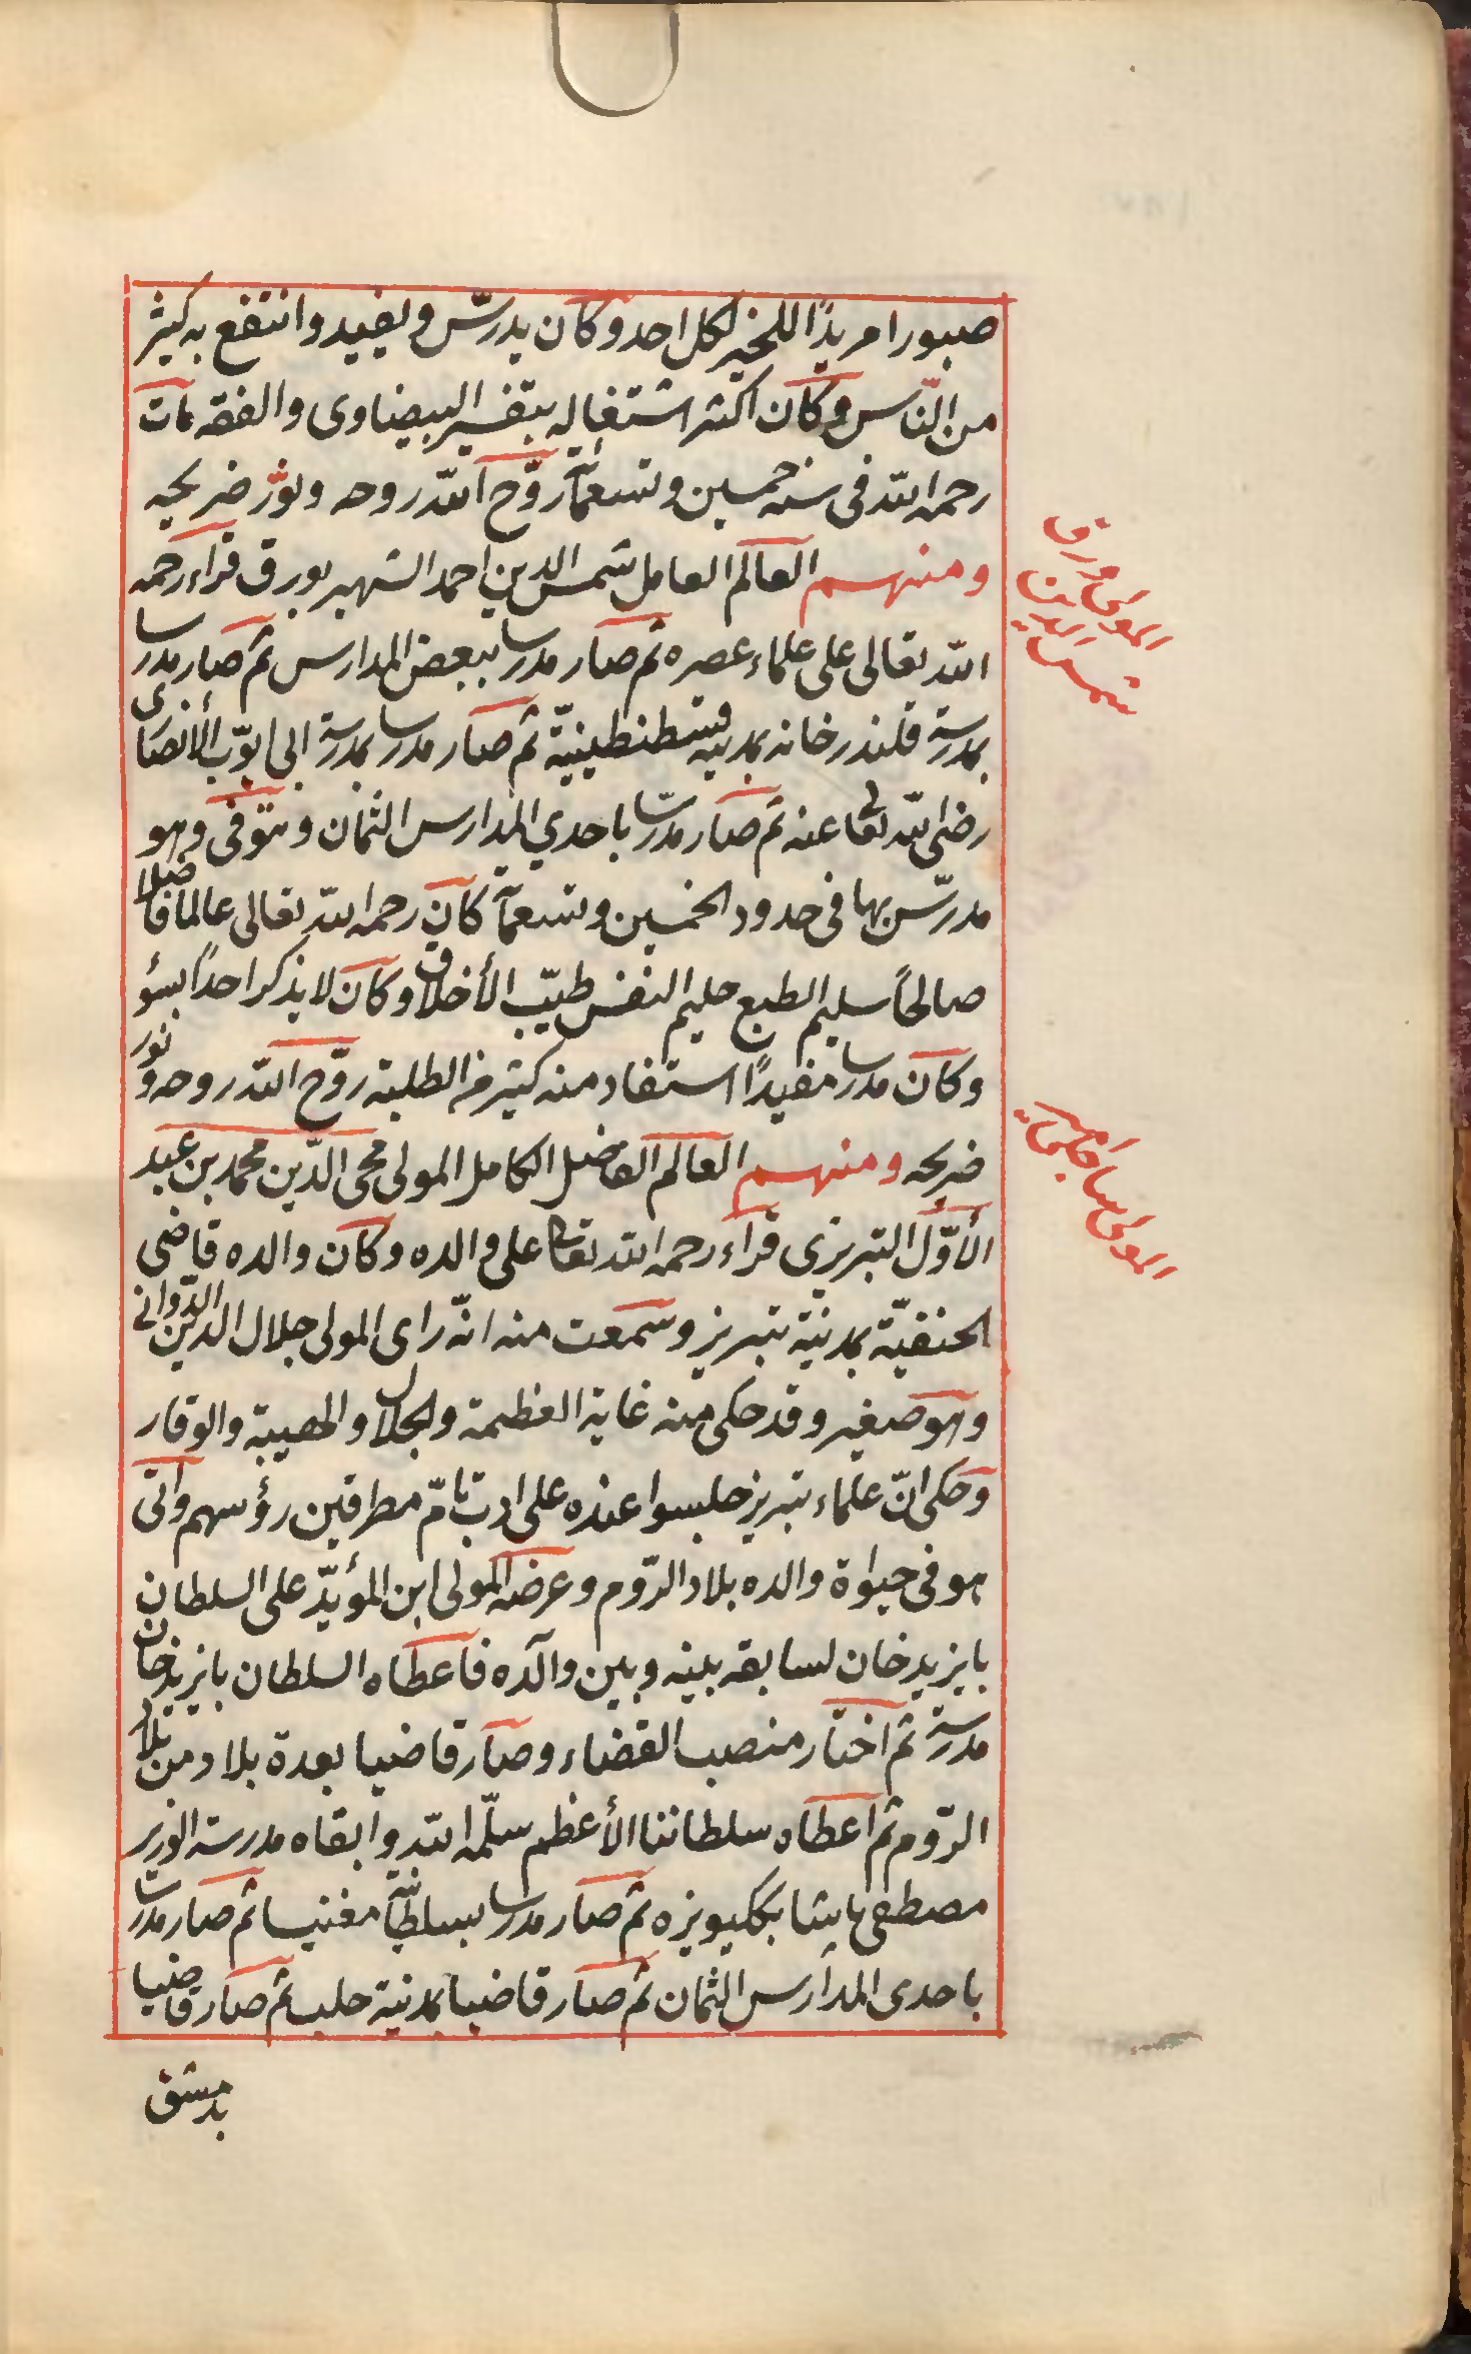 صبورا مريدًا للخير لكل احد وكان يدرّس ويفيد وانتفع به كثير
من النّاس وكان اكثر اشتغاله بتفسير البيضاوى والفقه مات
رحمه الله فى سنة خمسين وتسعمائة روّح الله روحه ونوّر ضريحه
ومنهم العالم العامل شمس الدين احمد الشهير بورق قراء رحمه
الله تعالى على علماء عصره ثم صار مدرسا ببعض المدارس ثم صار مدرسا
بمدرسة قلندرخانه بمدينه قسطنطينيّة ثم صار مدرسا بمدرسة ابى ايوّب الأنصارى
رضى الله تعالى عنه ثم صار مدرّسا باحدي المدارس الثمان وتوّفى وهو
مدرّس بها فى حدود الخمسين وتسعمائة كان رحمه الله تعالى عالما فاضلا
صالحًا سليم الطبع حليم النفس طيّب الأخلاق وكان لا يذكر احدًا بسؤ
وكان مدرسا مفيدًا استفاد منه كثير من الطلبة روّح الله روحه ونور
ضريحه ومنهم العالم الفاضل الكامل المولى محى الدّين محمد بن عبد
الأوّل التبريزى قراء رحمه الله تعالى على والده وكان والده قاضى
الحنفيّة بمدينة تبريز وسمعت منه انّه راى المولى جلال الدّين الدّوانى
وهو صغير وقد حكى منه غاية العظمة والجلال والهيبة والوقار
وحكى انّ علماء تبريز جلسوا عنده على ادب تامّ مطرقين رؤسهم واتى
هو فى حيوة والده بلاد الرّوم وعرضه المولى ابن المؤيّد على السلطان
بايزيد خان لسابقه بينه وبين والده فاعطاه السلطان بايزيد خان
مدرسة ثم اختار منصب القضاء وصار قاضيا بعدة بلاد من بلاد
الرّوم ثم اعطاه سلطاننا الأعظم سلّمه الله وابقاه مدرسة الوزير
مصطفى باشا بككيويزه ثم صار مدرسا بسلطانيّة مغنيسا ثم صار مدرسا
باحدى المدارس الثمان ثم صار قاضيا بمدينة حلب ثم صار قاضيا
بدمشق
المولى ورق
شمس الدين